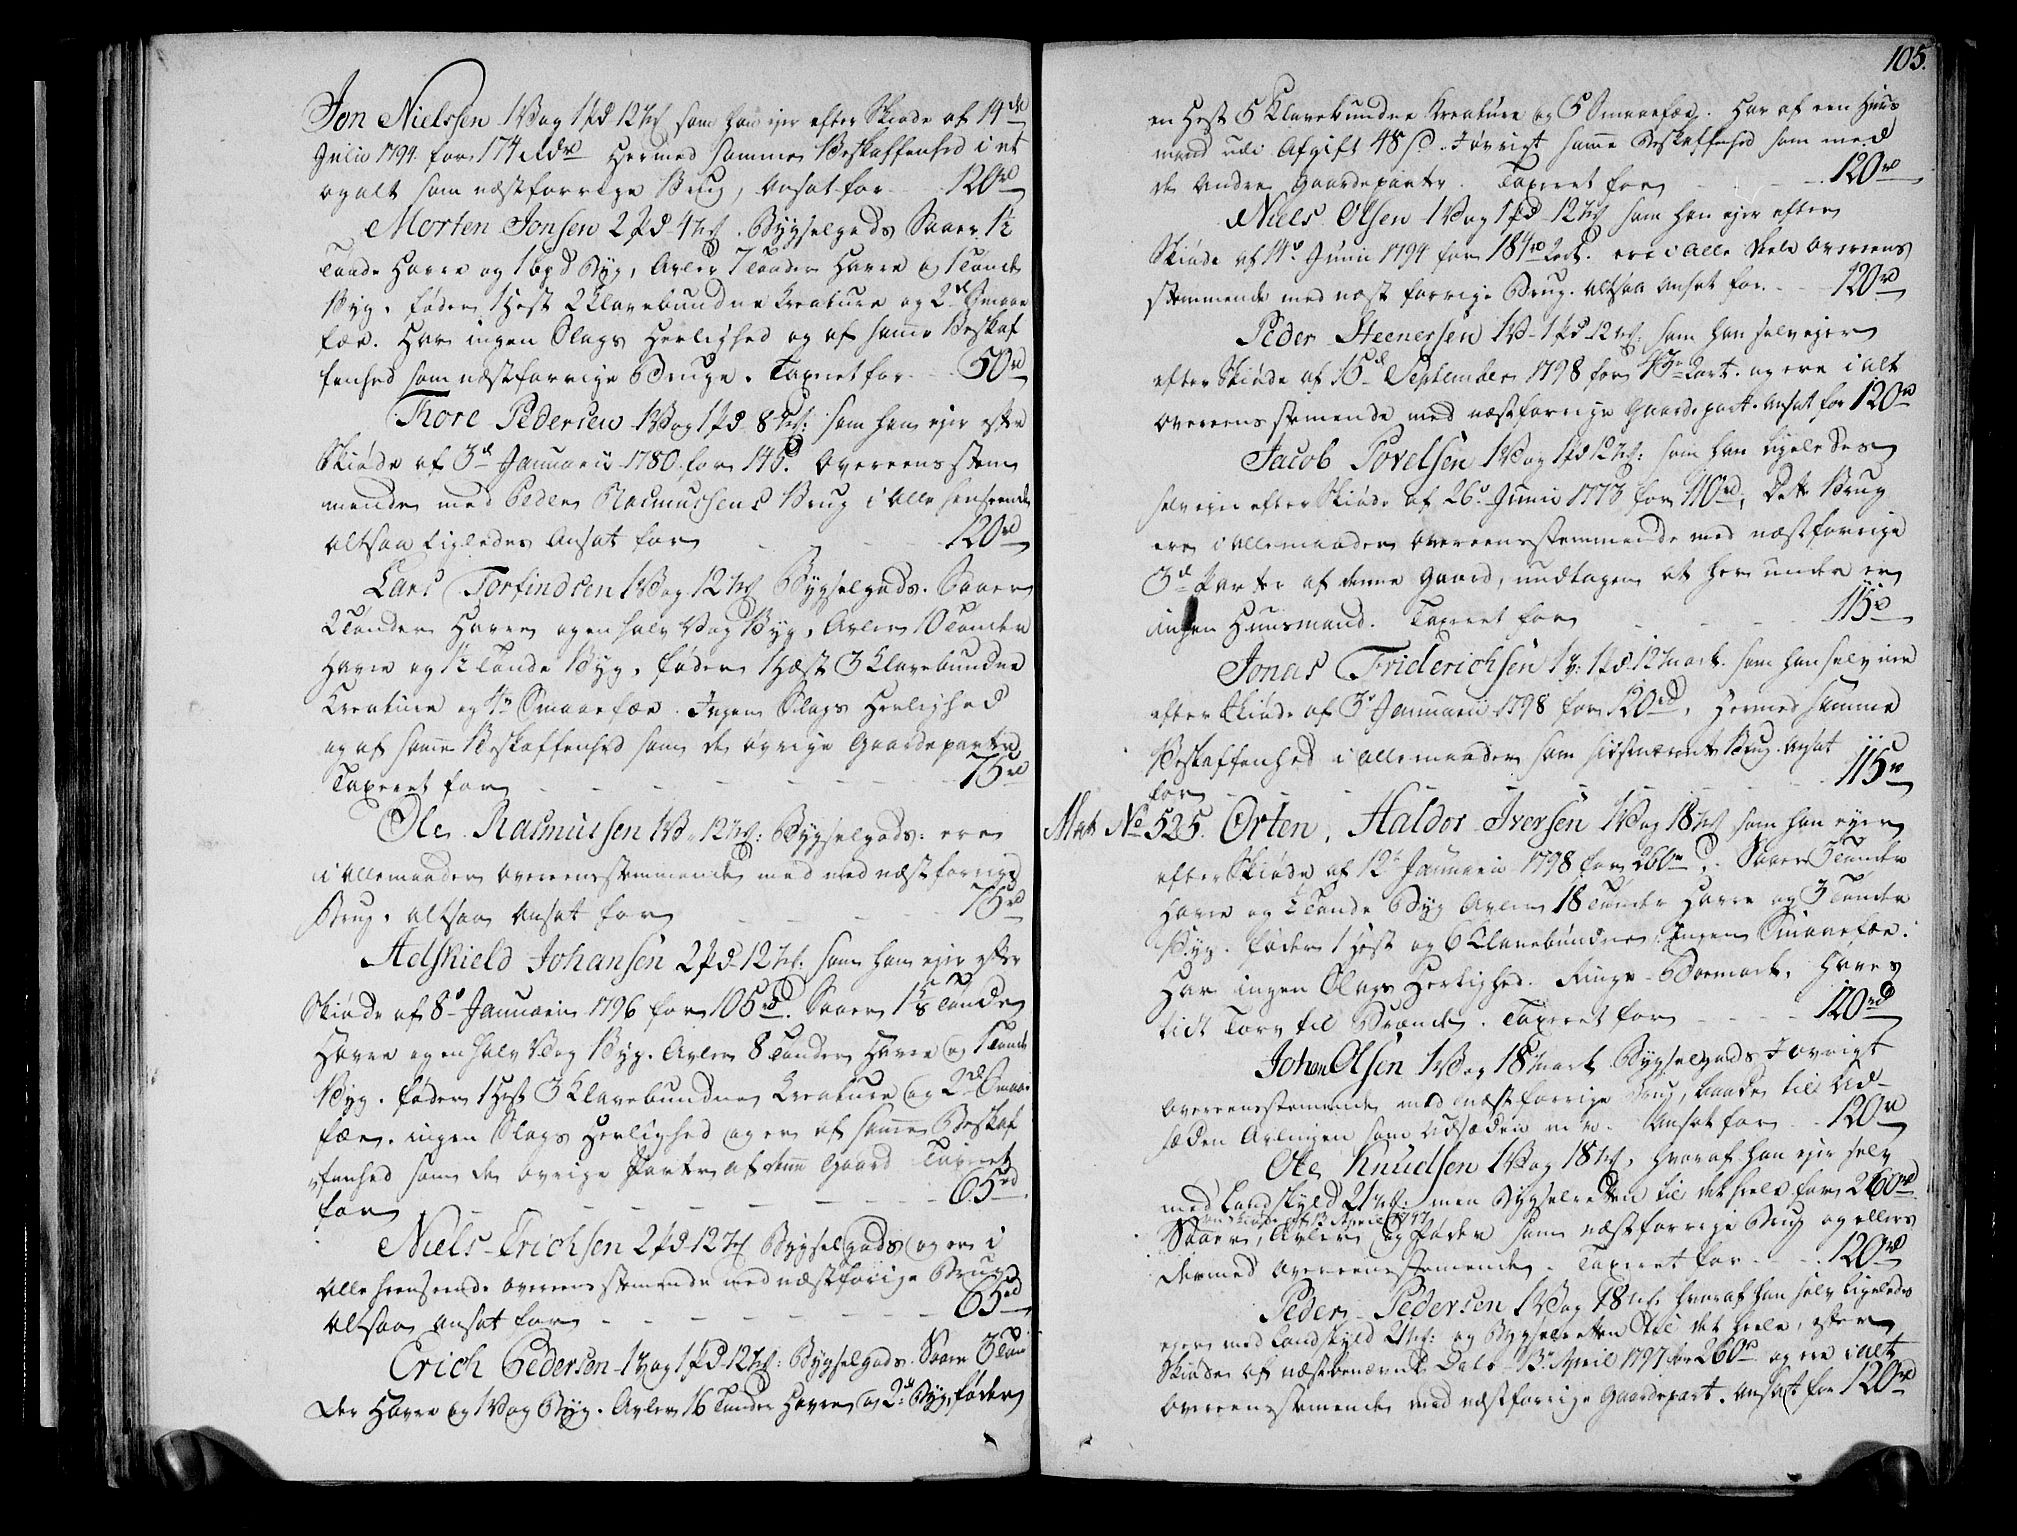 Jon Nielssen 1 Vog 1 pd 12 mk som han ejer efter Skiøde af 14de
Julii 1794 for 174 rdr Hermed samme Beskaffenhed i et
og alt som næstforrige Brug, ansat for 120 rd
Morten Jonsen 2 pd 4 mk. Bygselgods Saaer 1½
Tønde Havre og 1 bpd Byg, Avler 7 Tønder Havre og 1 Tønde
Byg, føder 1 Hest 2 Klavebundne Kreature og 2de Smaae
fæe. Har ingen Slags Herlighed og af samme Beskaf
fenhed som næstforrige Bruge. Taxeret for 50 rd
Thore Pedersen 1 Vog 1 pd 8 mk: som han ejer efter
Skiøde af 3de Januarii 1780 for 145 rd. overeensstem
mende med Peder Rasmussens Brug i alle henseende
altsaa ligeledes ansat for 120 rd
Lars Torfindsen 1 Vog 12 mk Bygselgods. Saaer
2 Tønder Havre og en halv Vog Byg, Avler 10 Tønder
Havre og 1½ Tønde Byg, føder 1 Hæst 3 Klavebundne
Kreature og 4re Smaaefæe. Ingen Slags Herlighed
og af samme Beskaffenhed som de øvrige Gaardeparter
Taxeret for 75 rd
Ole Rasmussen 1 V. 12 mk: Bygselgods. ere
i allemaader overeensstemmende med med næstforrige
Brug. altsaa ansat for 75 rd
Aelskield Johansen 2 pd 12 mk. som han ejer efter
Skiøde af 8de Januarii 1796 for 105 rd. Saaer Tønde
Havre og en halv Vog Byg. Avler 8 Tønder Havre og 1 Tønde
Byg. føder 1 Hest 3 Klavebundne Kreature og 2de Smaae
fæe. ingen Slags Herlighed og er af samme Beskaf
fenhed som de øvrige Parter af denne Gaard Taxeret
for 65 rd
Niels Erichsen 2 pd 12 mk Bygselgods og er i
alle henseende overeensstemende med næstforige Brug
altsaa ansat for 65 rd
Erich Pedersen 1 Vog 1 pd 12 mk: Bygselgods. Saaer 3 Tøn
der Havre og 1 Vog Byg. Avler 16 Tønder Havre og 2de Byg, føder
105.
en Hest 5 Klavebundne Kreature og 5 Smaaefæe. Har af een Huus
mand udi Afgift 48 s. Iøvrigt samme Beskaffenhed som med
de andre Gaardeparter. Taxeret for 120 rd
Niels Olsen 1 Vog 1 pd 12 mk som han ejer efter
Skiøde af 14de Junii 1794 for 184 rd. ere i alle Deele overeens
stemmende med næst forrige Brug. altsaa ansat for 120 rd
Peder Steenersen 1 V. 1 pd 12 mk: som han selv ejer
efter Skiøde af 15de September 1798 for og ere i alt
overeensstemende med næstforrige Gaardepart. ansat for 120 rd
Jacob Povelsen 1 Vog 1 pd 12 mk: som han ligeledes
selv ejer efter Skiøde af 26de Junii 1773 for 110 rd, Dette Brug
ere i allemaader overeensstemmende med næstforrige
3de Parter af denne Gaard, undtagen at her under er
ingen Huusmand. Taxeret for 115 rd
Jonas Friderichsen 1 V: 1 pd. 12 mark. som han selv eier
efter Skiøde af 3de Januarii 1798 for 120 rd, Hermed samme
Beskaffenhed i allemaader som sidstnævnte Brug. ansat
for 115 rd
Matr No 525. Orten, Haldor Iversen 1 Vog 18 mk som han ejer
efter Skiøde af 12te Januarii 1798 for 260 rd. Saaer 3 Tønder
Havre og ½ Tønde Byg Avler 18 Tønder Havre og 3 Tønder
Byg. føder 1 Hest og 6 Klavebundne, Ingen Smaaefæe.
Har ingen Slags Herlighed. Ringe Boemark, haves
lidt Torv til Brænde. Taxeret for 120 rd
Johan Olsen 1 Vog 18 mark Bygselgods Iøvrigt
overeensstemende med næstforrige Brug, baade til Ud-
sæden Avlingen som Udsæden m. v. Ansat for 120 rd
Ole Knudsen 1 Vog 18 mk, hvoraf han ejer selv
med Landskyld 21 mk: men Bygselretten til det heele for 260 rd
Skiøde af 13 April 1797
Saaer, Avler og føder som næstforrige Brug og ellers
dermed overeensstemende. Taxeret for 120 rd
Peder Pedersen 1 Vog 18 mk. hvoraf han selv ligeledes
ejer med Landskyld 21 mk: og Bygselretten til det heele, efter
Skiøde af næstbenævnte Dato 13 April 1797 for 260 rd og ere i alt
overeensstemende med næstforrige Gaardepart. ansat for 120 rd